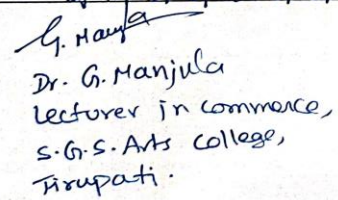 G. Manjula
Dr. G. Manjula
Lecturer in commerce,
S.G.S. Arts college,
Tirupati.